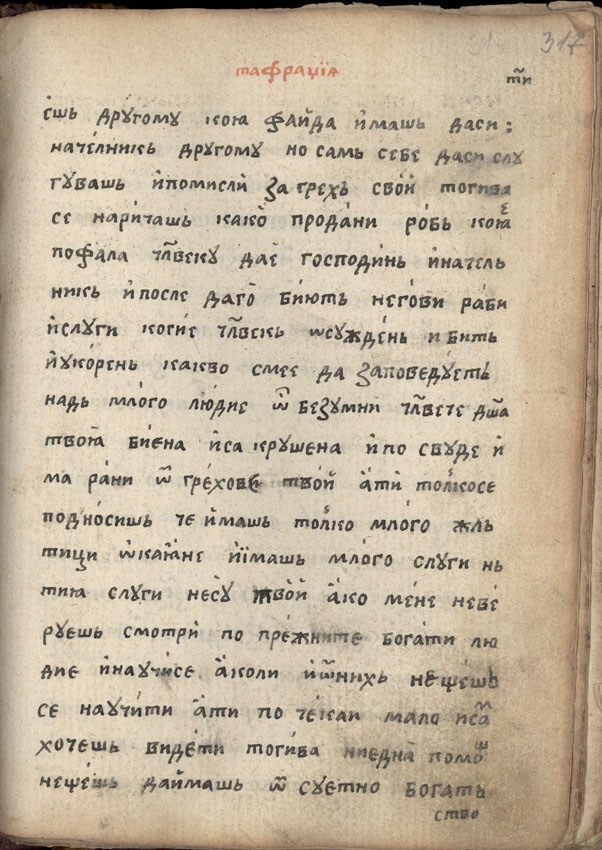 317
тафраціѧ
тⷯи
е́шь дрꙋ́гомꙋ коꙗ фа́йда и҆машь даси :
наче́лникь дрꙋгомꙋ но самь себе даси слꙋ
гꙋвашь и҆помисли̇̀ за грехь сво́й тогива
се нари́чашь како̀ прода́ни ро́бь коꙗ҆̀
пофа́ла чл҃векꙋ дае́ господи́нь и҆натель
никь и҆после даго̑ би́ють негови ра́би
и҆слꙋги когѝе чл҃векь ѡсꙋжде́нь и бить
и҆ꙋко́рень какво смее да заповедꙋ́еть
надь мло́го лю́дие ѿ безꙋмни чл҃вече дш҃а
твоꙗ̀ бие́на и҆са крꙋшена и҆по свꙋде и҆
ма ра́ни ѿ гре́хове тво́й а҆ти̇̀ то́лкосе
подно́сишь че и҆машь то́лко мло́го жль
тици ѽкаа́не и҆и́машь мло́го слꙋги нь
тиꙗ слꙋги не́сꙋ тво́й а҆ко ме́не неве́
рꙋешь смотри̇̀ по пре́жните богати лю
дие и҆наꙋчи́се а҆коли и҆ѿнихь не́щешь
се наꙋчи́ти а҆ти по че́каи мало и҆са́мь
хо́чешь виде́ти тоги́ва ниедна̀ помощь
неще́шь дай́машь ѿ сꙋе́тно богать
ство